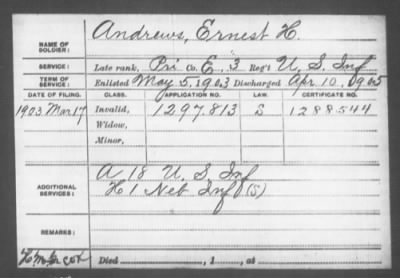 Andrews, Ernest H.
NAME OF SOLDIER:
SERVICE: Late rank, Pri Co. E, 3 Reg't U. S. Inf
TERM OF SERVICE: Enlisted May 5, 1903 Discharged Apr. 10, 1905
DATE OF FILING. CLASS. APPLICATION NO. LAW. CERTIFICATE NO.
1903 Mar 17 Invalid, 1297.813 1288.544
Widow,
Minor,
A 18 U. S. Inf
ADDITIONAL SERVICES: H 1 Neb Inf (S)
REMARKS:
Died , 1 , at